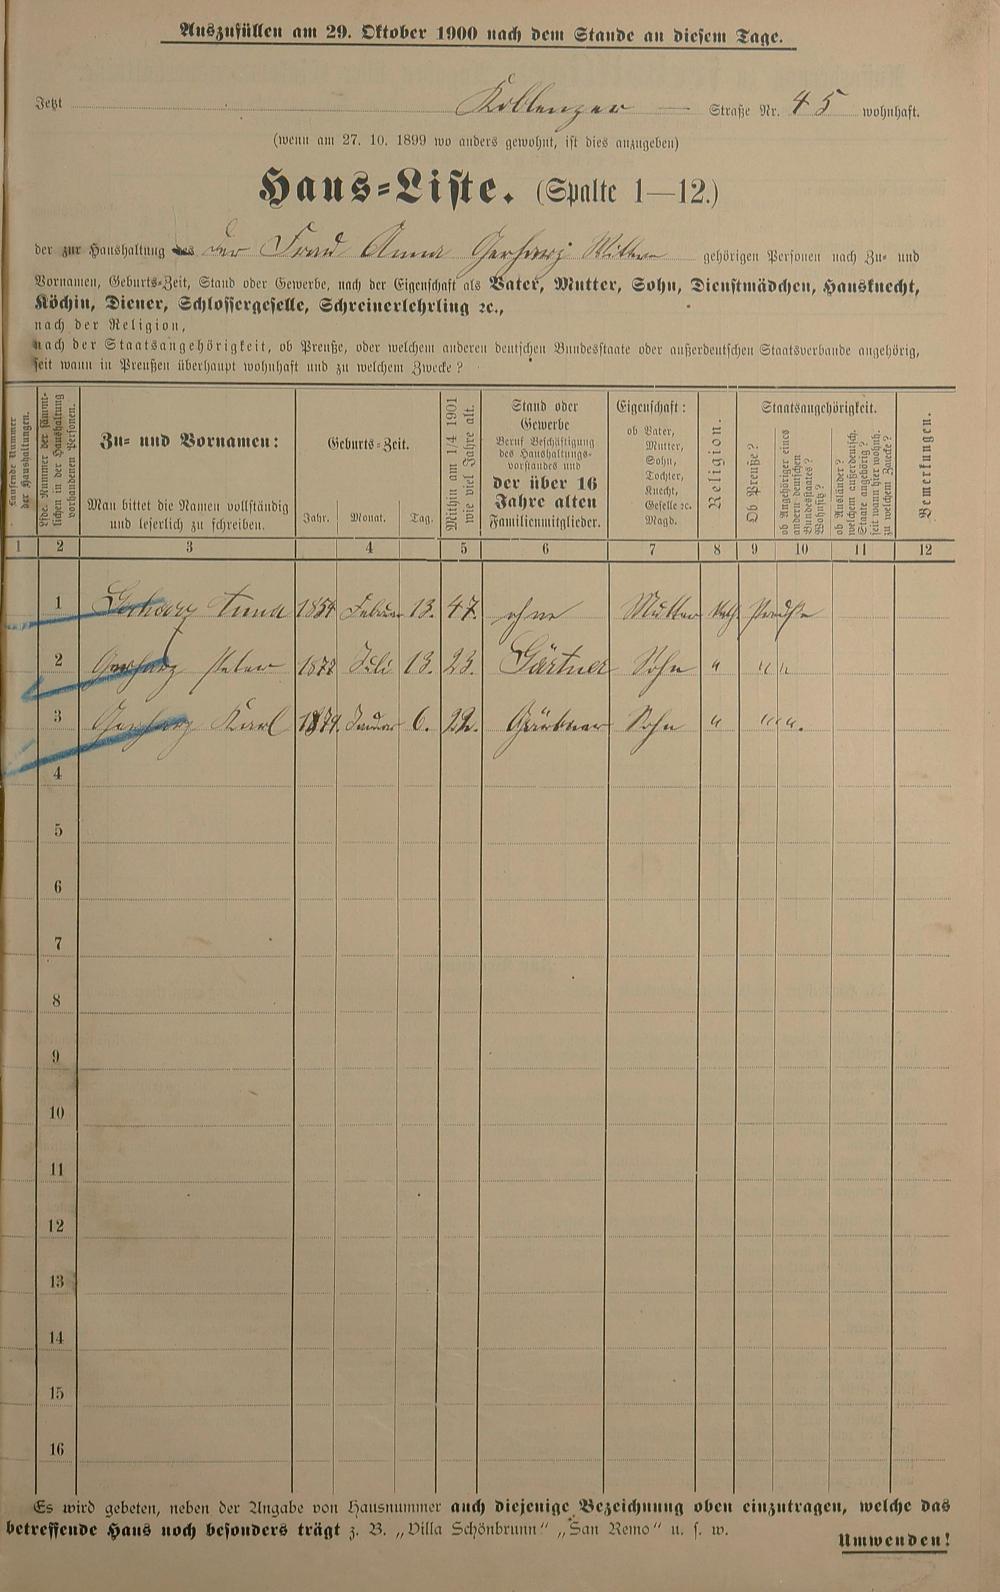 Auszufüllen am 29. Oktober 1900 nach dem Stande an diesem Tage.
Jetzt Koblenzer — Straße Nr. 45 wohnhaft.
(wenn am 27. 10. 1899 wo anders gewohnt, ist dies anzugeben)
Haus-Liste. (Spalte 1—12.)
der zur Haushaltung des der Frau Anna Gerharz Wittwe gehörigen Personen nach Zu- und
Vornamen, Geburts-Zeit, Stand oder Gewerbe, nach der Eigenschaft als Vater, Mutter, Sohn, Dienstmädchen, Hausknecht,
Köchin, Diener, Schlossergeselle, Schreinerlehrling ec.,
nach der Religion,
nach der Staatsangehörigkeit, ob Preuße, oder welchem anderen deutschen Bundesstaate oder außerdeutschen Staatsverbande angehörig,
seit wann in Preußen überhaupt wohnhaft und zu welchem Zwecke?
Laufende Nummer der Haushaltungen.
Lfde. Nummer der sämmtlichen in der Haushaltung vorhandenen Personen.
Zu- und Vornamen:
Man bittet die Namen vollständig
und leserlich zu schreiben.
Geburts-Zeit.
Jahr. Monat. Tag.
Mithin am 1/4 1901
wie viel Jahre alt.
Stand oder
Gewerbe
Beruf Beschäftigung
des Haushaltungs-
vorstandes und
der über 16
Jahre alten
Familienmitglieder.
Eigenschaft:
ob Vater,
Mutter,
Sohn,
Tochter,
Knecht,
Geselle ec.
Magd.
Religion.
Staatsangehörigkeit.
Ob Preuße?
ob Angehöriger eines
andern deutschen
Bundesstaates?
Wohnsitz?
ob Ausländer?
welchem außerdeutsch.
Staate angehörig?
seit wann hier wohnh.
zu welchem Zwecke?
Bemerkungen.
1 2 3 4 5 6 7 8 9 10 11 12
1 Gerharz Anna 1854 Februar 13. 47. ohne Mutter kath. Preuße
2 Gerharz Peter 1877 Juli 13. 23. Gärtner Sohn " " "
3 Gerharz Karl 1879. Januar 6. 22. Gärtner Sohn " " " ".
4
5
6
7
8
9
10
11
12
13
14
15
16
Es wird gebeten, neben der Angabe von Hausnummer auch diejenige Bezeichnung oben einzutragen, welche das
betreffende Haus noch besonders trägt z. B. „Villa Schönbrunn" „San Remo" u. s. w.
Umwenden!